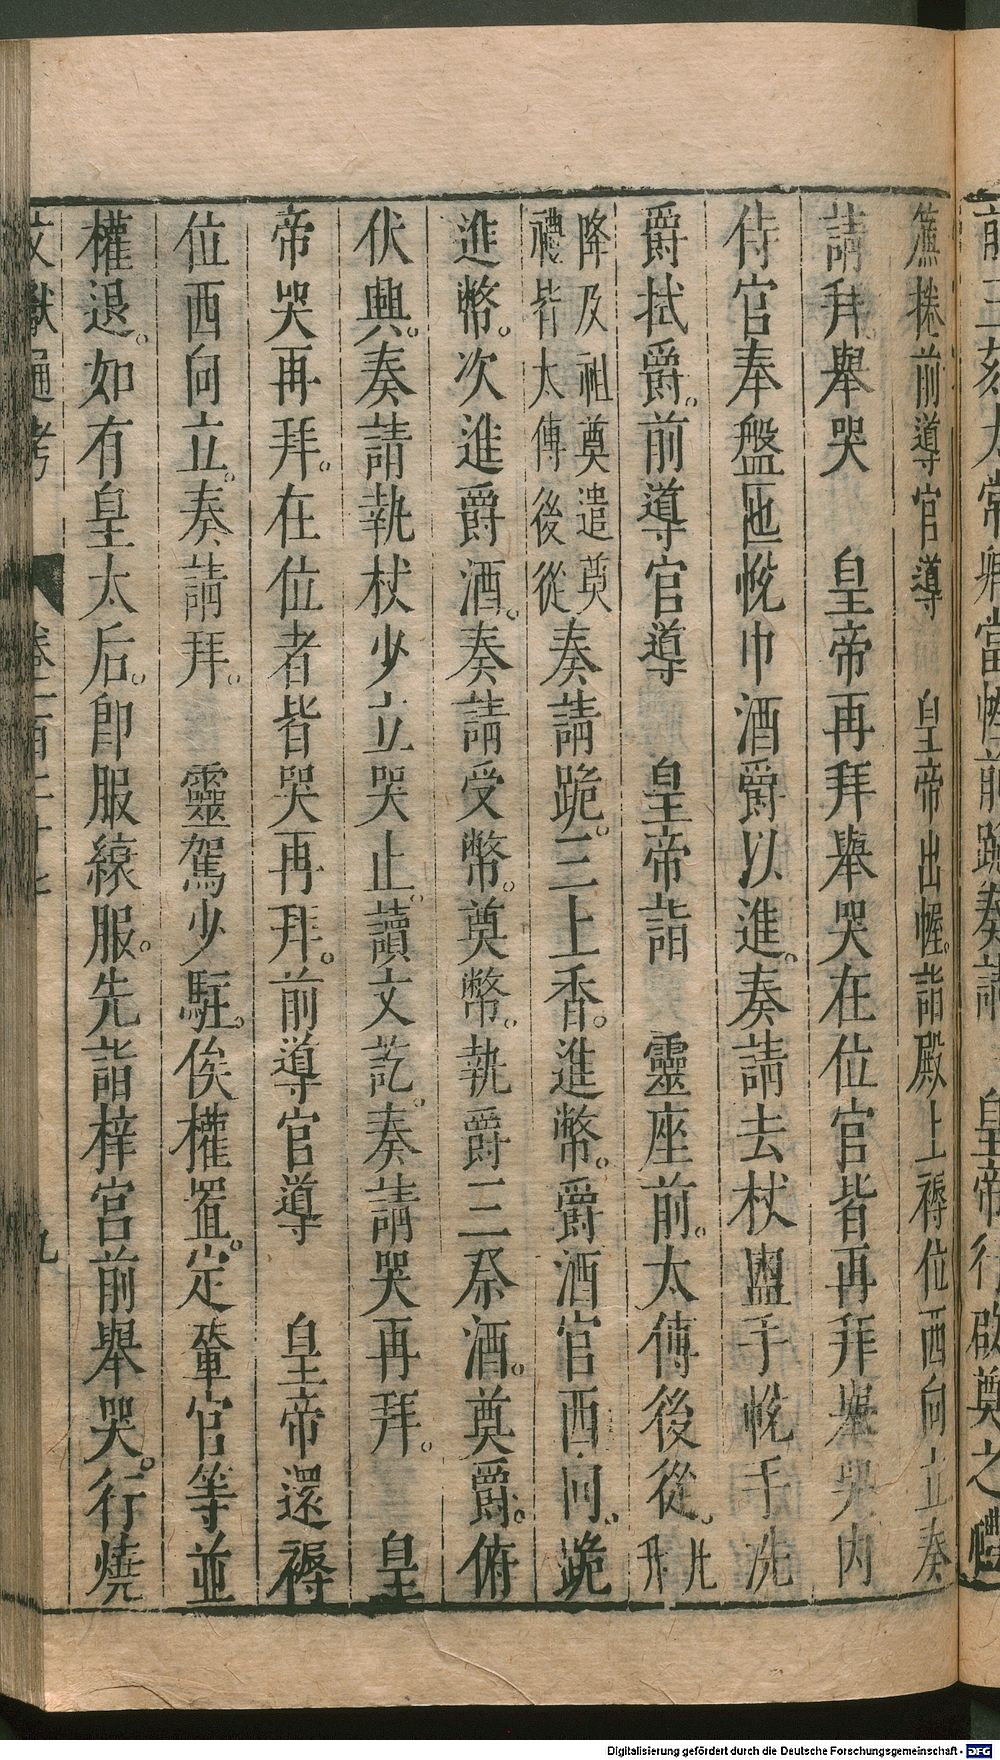 前三刻太常卿當幄前跪奏請　皇帝行啟奠之禮
簾捲前導官導　皇帝出幄。詣殿上褥位西向立奏
請拜。舉哭　皇帝再拜舉哭在位官皆再拜舉哭内
侍官奉盤匜帨巾酒爵以進。奏請去杖盥手帨手洗
爵拭爵。前導官導　皇帝詣　靈座前。太傅後從。凡升
降及祖奠遣奠禮皆太傅後從奏請跪。三上香。進幣。爵酒官西向。跪
進幣。次進爵酒。奏請受幣。奠幣。執爵三祭酒。奠爵。俯
伏興。奏請執杖少立哭止。讀文訖。奏請哭再拜。　皇
帝哭再拜。在位者皆哭再拜。前導官導　皇帝還褥
位西向立。奏請拜。　靈駕少駐。俟權置。定輦官等並
權退。如有皇太后。即服縗服。先詣梓宮前舉哭。行燒
文獻通考　卷一百二十七　九
Digitalisierung gefördert durch die Deutsche Forschungsgemeinschaft - DFG